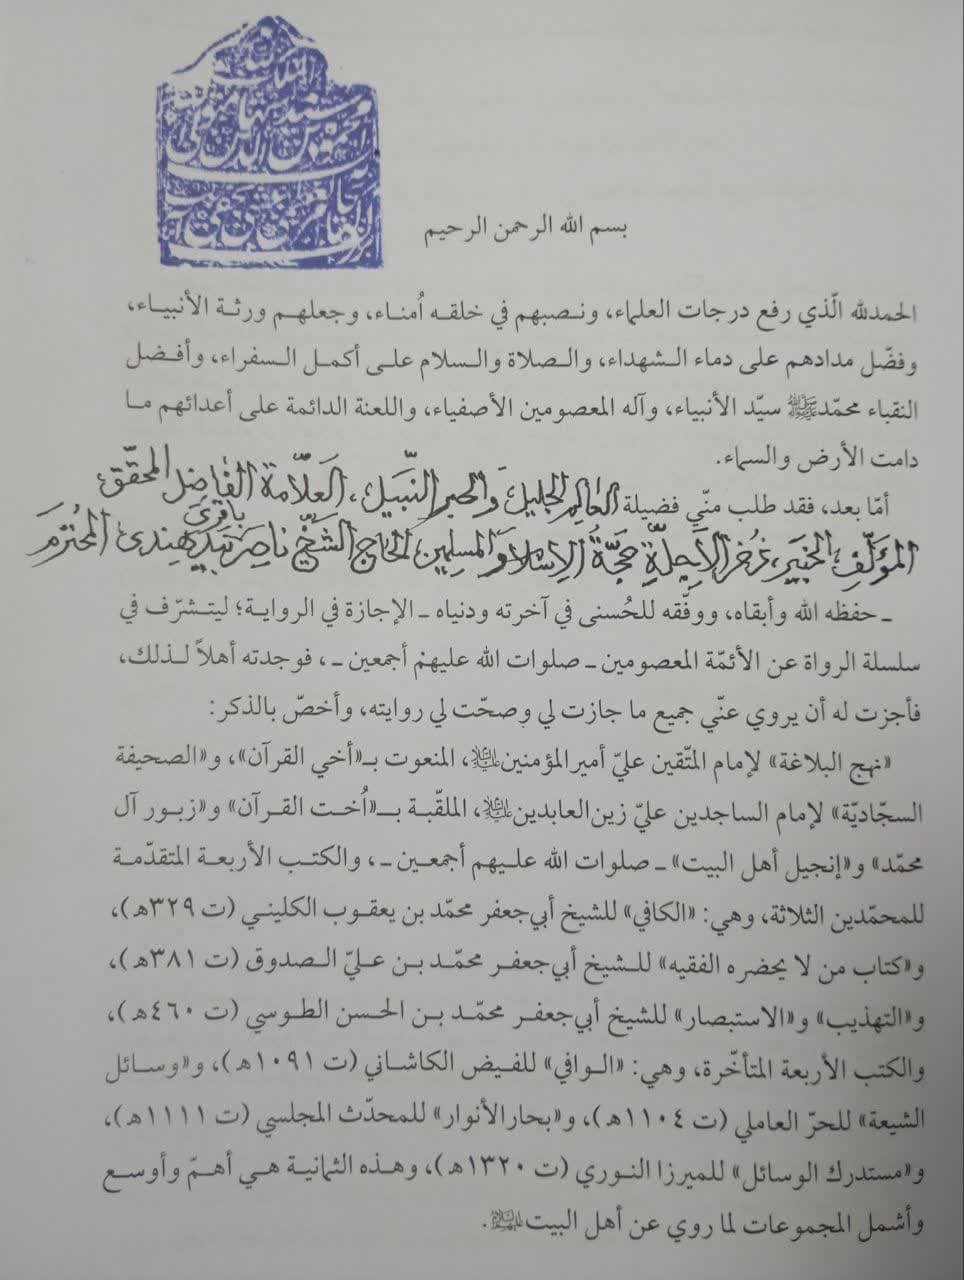 بسم الله الرحمن الرحيم
الحمدلله الّذي رفع درجات العلماء، ونصبهم في خلقه أُمناء، وجعلهم ورثة الأنبياء،
وفضّل مدادهم على دماء الشهداء، والصلاة والسلام على أكمل السفراء، وأفضل
النقباء محمّد ﷺ سيّد الأنبياء، وآله المعصومين الأصفياء، واللعنة الدائمة على أعدائهم ما
دامت الأرض والسماء.
أمّا بعد، فقد طلب منّي فضيلة العَالِمِ الجليل وَالحبر النّبيل، العَلّامة الفاضِل المحقّق،
باقري
المؤلّف الخبير، غُرّةُ الأجِلّةِ حجّةُ الإسلام وَالمسلمين الحاج الشّيخ ناصِر بيدهندى المُحترمَ
ـ حفظه الله وأبقاه، ووفّقه للحُسنى في آخرته ودنياه ـ الإجازة في الرواية؛ ليتشرّف في
سلسلة الرواة عن الأئمّة المعصومين ـ صلوات الله عليهم أجمعين ـ، فوجدته أهلاً لذلك،
فأجزت له أن يروي عنّي جميع ما جازت لي وصحّت لي روايته، وأخصّ بالذكر:
«نهج البلاغة» لإمام المتّقين عليّ أميرالمؤمنين عليه السلام، المنعوت بـ«أخي القرآن»، و«الصحيفة
السجّاديّة» لإمام الساجدين عليّ زين‌العابدين عليه السلام، الملقّبة بـ«أُخت القرآن» و«زبور آل
محمّد» و«إنجيل أهل البيت» ـ صلوات الله عليهم أجمعين ـ، والكتب الأربعة المتقدّمة
للمحمّدين الثلاثة، وهي: «الكافي» للشيخ أبي‌جعفر محمّد بن يعقوب الكليني (ت ٣٢٩هـ)،
و«كتاب من لا يحضره الفقيه» للشيخ أبي‌جعفر محمّد بن عليّ الصدوق (ت ٣٨١هـ)،
و«التهذيب» و«الاستبصار» للشيخ أبي‌جعفر محمّد بن الحسن الطوسي (ت ٤٦٠هـ)،
والكتب الأربعة المتأخّرة، وهي: «الوافي» للفيض الكاشاني (ت ١٠٩١هـ)، و«وسائل
الشيعة» للحرّ العاملي (ت ١١٠٤هـ)، و«بحارالأنوار» للمحدّث المجلسي (ت ١١١١هـ)،
و«مستدرك الوسائل» للميرزا النوري (ت ١٣٢٠هـ)، وهذه الثمانية هي أهمّ وأوسع
وأشمل المجموعات لما روي عن أهل البيت عليهم السلام.